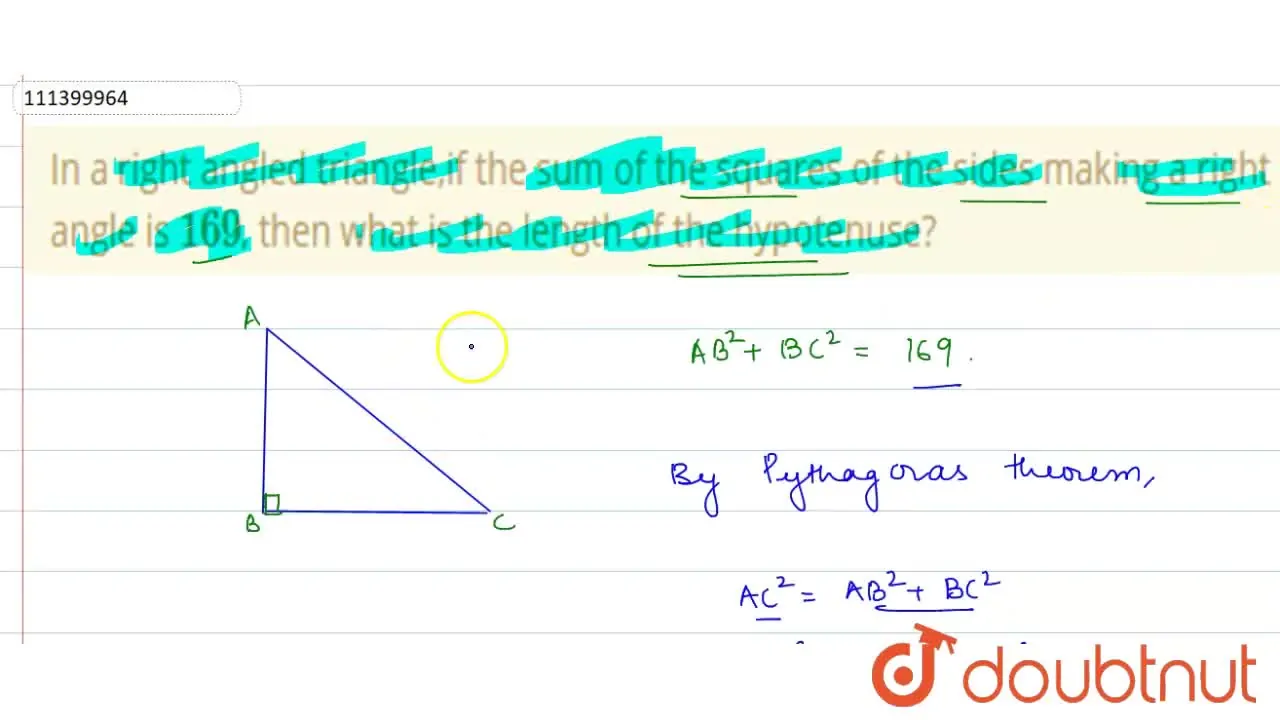 111399964
In a right angled triangle,if the sum of the squares of the sides making a right
angle is 169, then what is the length of the hypotenuse?
A
AB² + BC² = 169.
By Pythagoras theorem,
B
C
AC² = AB² + BC²
doubtnut